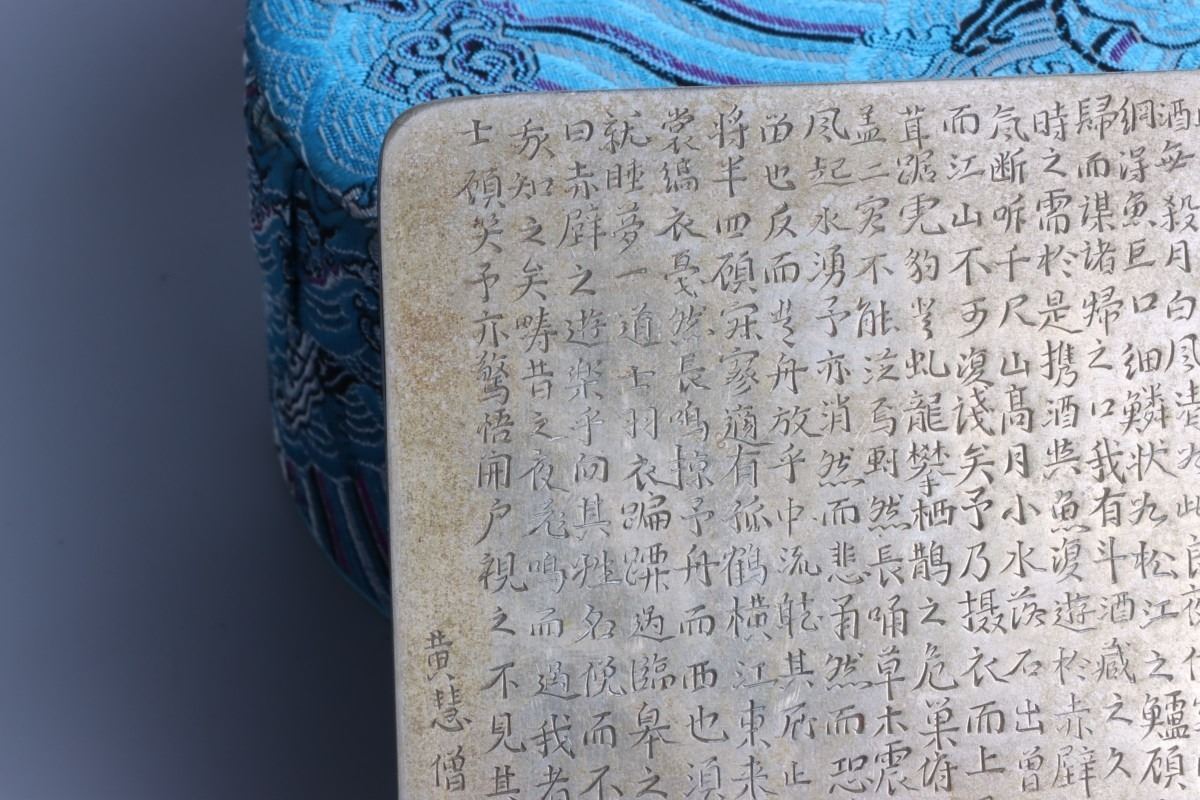 酒無殺月白風清如此良夜
網得魚巨口細鱗狀如松江之鱸顧
歸而謀諸婦之曰我有斗酒藏之久
時之需於是携酒與魚復遊於赤壁
断岸千尺山高月小水落石出曾
而江山不可復識矣予乃摄衣而上
茸踞虎豹登虬龍攀栖鶻之危巢俯
盖二客不能從焉劃然長啸草木震
風起水湧予亦消然而悲肅然而恐
留也反而登舟放乎中流聽其所止
将半四顧寂寥適有孤鶴横江東来
裳縞衣戛然長鳴掠予舟而西也須
就睡夢一道士羽衣蹁躚過臨皋之
曰赤壁之遊樂乎问其姓名俛而不
我知之矣疇昔之夜飛鳴而過我者
士顧笑予亦驚悟開户視之不見其
黄慧僧